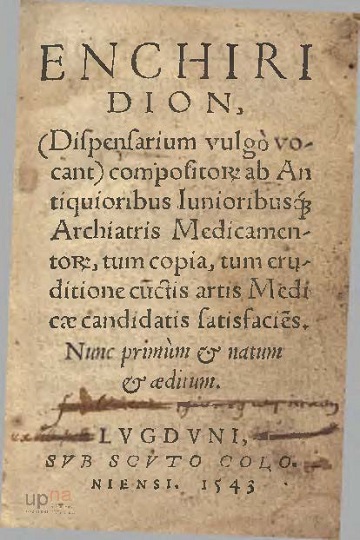 ENCHIRI
DION,
(Dispensarium vulgò vo-
cant) compositoꝝ ab An
tiquioribus Iunioribusq́ꝫ
Archiatris Medicamen-
toꝝ, tum copia, tum eru-
ditione cũctis artis Medi
cæ candidatis satisfaciẽs.
Nunc primùm & natum
& æditum.
LVGDVNI,
SVB SCVTO COLO-
NIENSI. 1543
upna